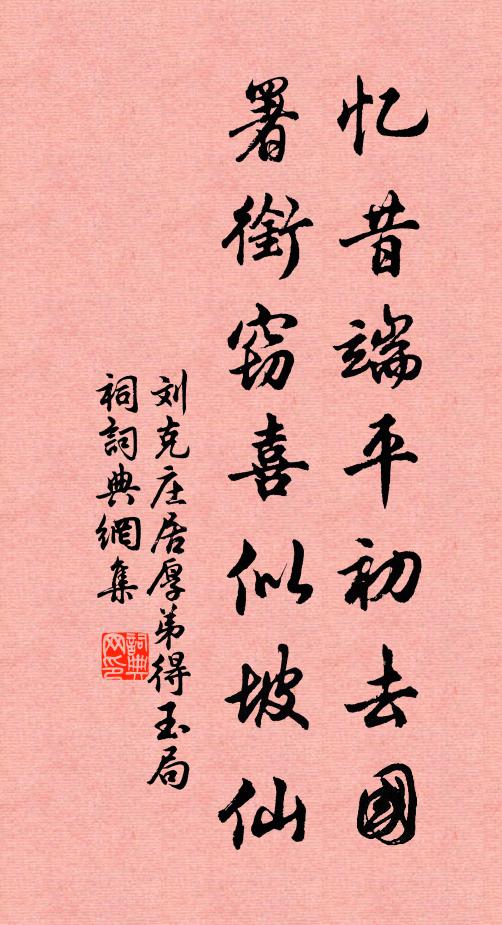 忆昔端平初去國
署銜窃喜似坡仙
刘克庄居厚弟得玉局
祠詞典網集
詞典网印